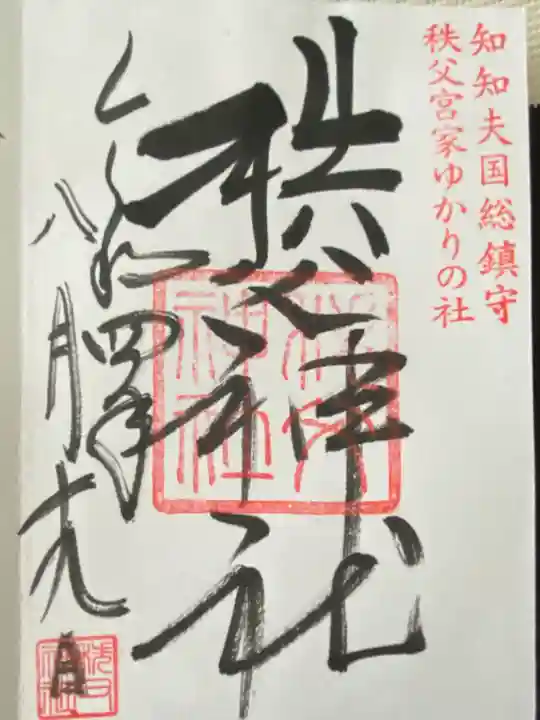 知知夫国総鎮守
秩父宮家ゆかりの社
秩父神社
令和四年
八月十九日
秩父神社